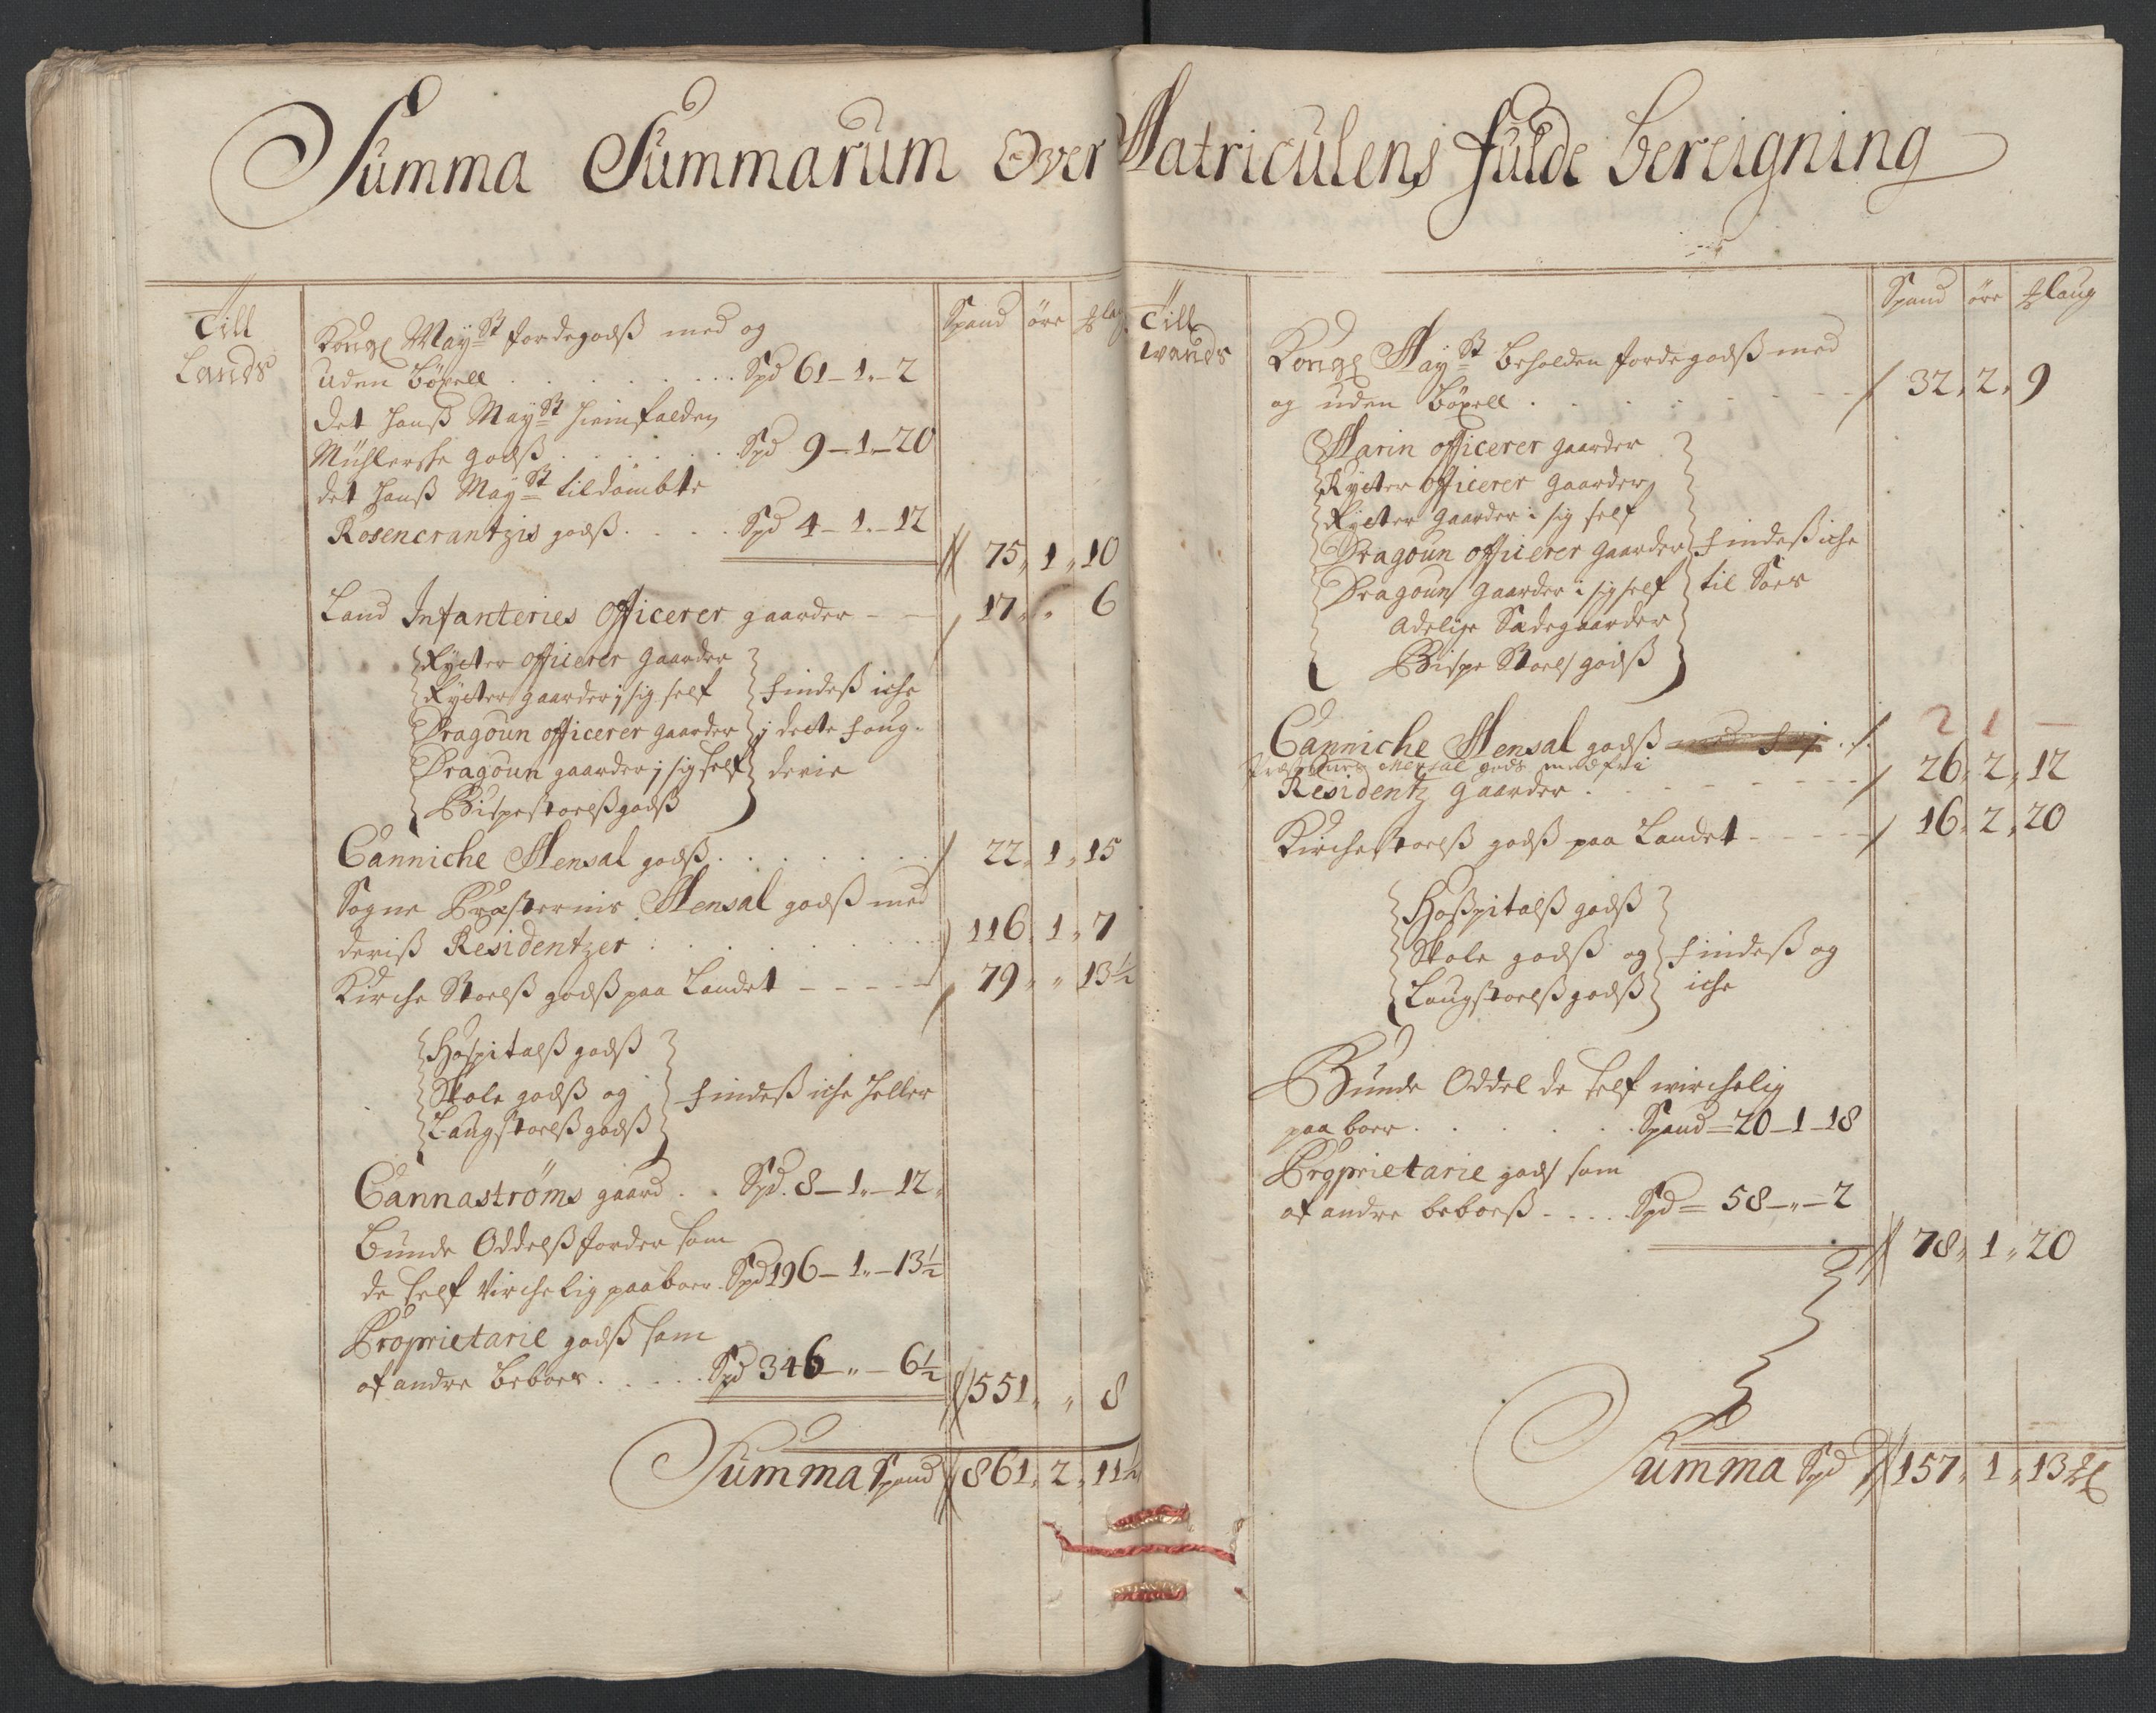 Summa Summarum Over Matriculens fulde bereigning
Till
Lands
Spand öre
Kongl May:st Jordegodß med og
uden böxell . . . . . . . Spd 61 - 1 - 2
det hanß May:st hiemfalden
Mühlerske godß . . . . . . Spd 9 - 1 - 20
det hanß May:st tildömbte
Rosencrantzis godß . . . . Spd 4 - 1 - 12
75 " 1 " 10
Land Infanteries Officerer gaarder - - 17 " " 6
Rytter officerer gaarder
Rytter gaarder i sig self
Dragoun officerer gaarder
Dragoun gaarder i sig self
Bispestoelßgodß
findeß iche
i dette foug-
derie
Canniche Mensal godß . . . . . . . 22 " 1 " 15
Sogne Præsternis Mensal godß med
deriß Residentzer . . . . . . . . 116 " 1 " 7
Kirche Stoelß godß paa Landet - - - - - 79 " " 13½
Hospitalß godß
Skole godß og
Laugstoelßgodß
findeß iche heller
Cannaströms gaard . . Spd. 8 - 1 - 12
bunde Oddelß Jorder som
de self virchelig paaboer Spd 196 - 1 - 13½
Proprietarie godß som
af andre beboes . . . . . Spd 346 - " - 6½
551 " " 8
Summa Spand 861 " 2 " 11½
Till
wands
Spand öre
Kongl May:st beholden Jordegodß med
og uden böxell . . . . . . . 32 " 2 " 9
Marin officerer gaarder
Rytter Officerer gaarder
Rytter gaarder i sig self
Dragoun officerer gaarder
Dragoun gaarder i sig self
Adelige Sædegaarder
Bispe Stoelß godß
findeß iche
til Söes
Canniche Mensal godß 2 1 -
Præsternes Mensal gods med fri
Residentz gaarder . . . . . . . 26 " 2 " 12
Kirchestoelß godß paa Landet - - - - 16 " 2 " 20
Hoßpitalß godß
Skole godß og
Laugstoelßgodß
findeß og
iche
Bunde Oddel de self wirchelig
paa boer . . . . . . Spand = 20 - 1 - 18
Proprietarie gods som
af andre beboeß . . . . Spd = 58 - " - 2
78 " 1 " 20
Summa Spd 157 " 1 " 13